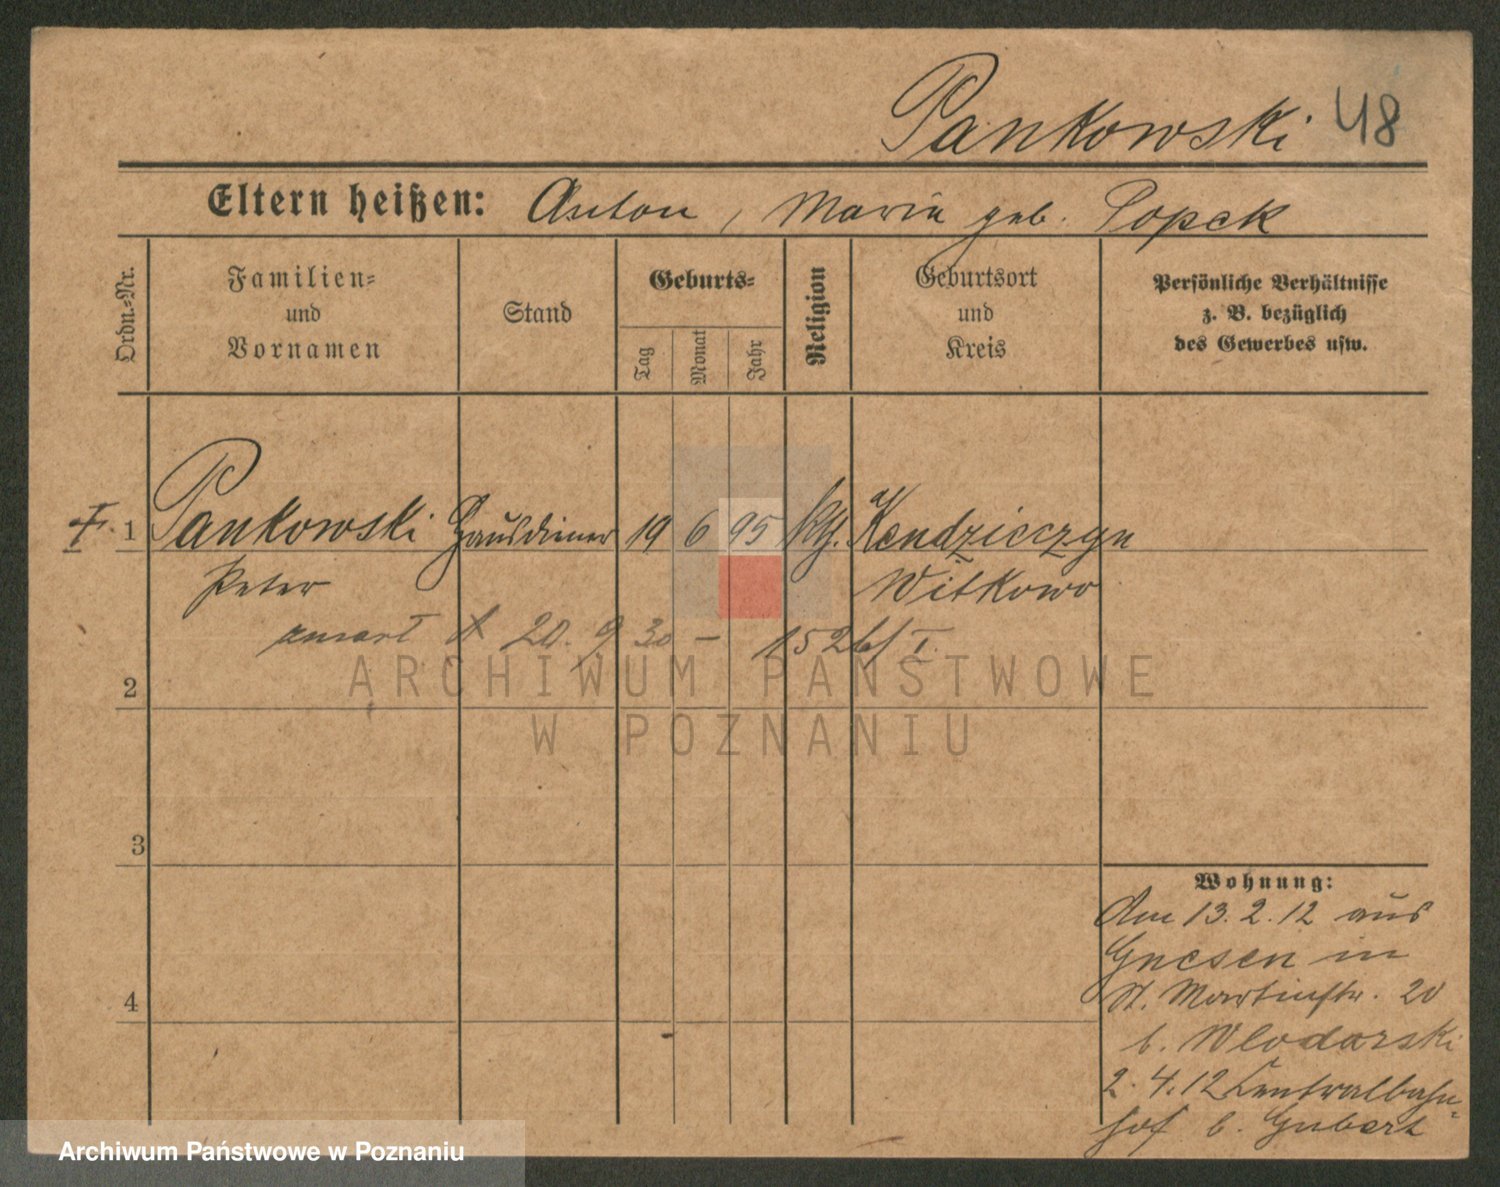 Pankowski 48
Eltern heißen: Anton, Maria geb. Popek
Ordn.-Nr.
Familien-
und
Vornamen
Stand
Geburts-
Tag
Monat
Jahr
Religion
Geburtsort
und
Kreis
Persönliche Verhältnisse
z. B. bezüglich
des Gewerbes usw.
I. 1 Pankowski Hausdiener 19 6 95 kth. Kendzierzyn
Peter Witkowo
20. 9 30 — 1526/I.
2
3
4
Wohnung:
Am 13.2.12 aus
Gnesen in
St. Martinstr. 20
b. Wlodarski
2.4.12 Centralbahn-
hof b. Gubert
ARCHIWUM PAŃSTWOWE
W POZNANIU
Archiwum Państwowe w Poznaniu